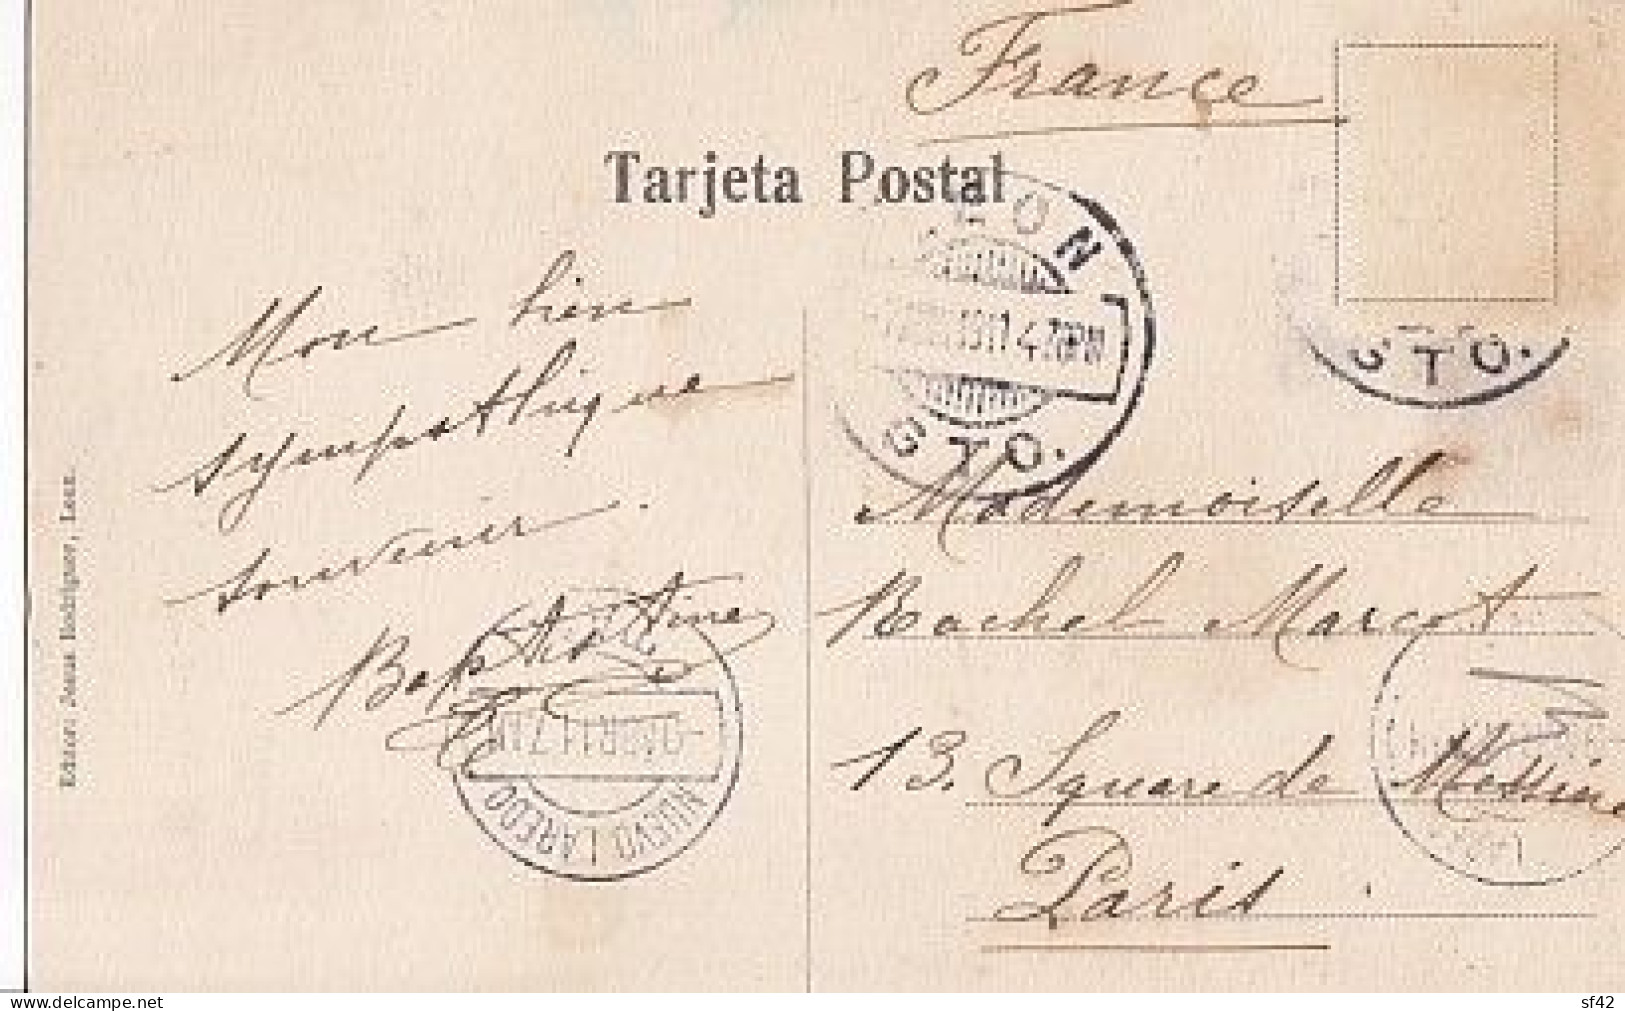 France
Tarjeta Postal
Mon bien
sympathique
souvenir.
Baptistine
Mademoiselle
Rachel Marcot
13. Square de Messine
Paris.
LEON
1911 4 PM
GTO.
GTO.
NUEVO LAREDO
Editor: Jesus Rodriguez, Leon.
www.delcampe.net
sf42